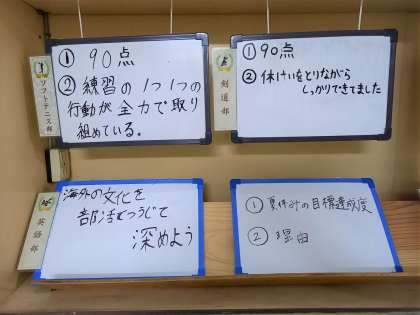 ソフトテニス部
① 90点
② 練習の1つ1つの
行動が全力で取り
組めている。
剣道部
① 90点
② 休けいをとりながら
しっかりできてました
英語部
海外の文化を
部活をつうじて
深めよう
① 夏休みの目標達成度
② 理由